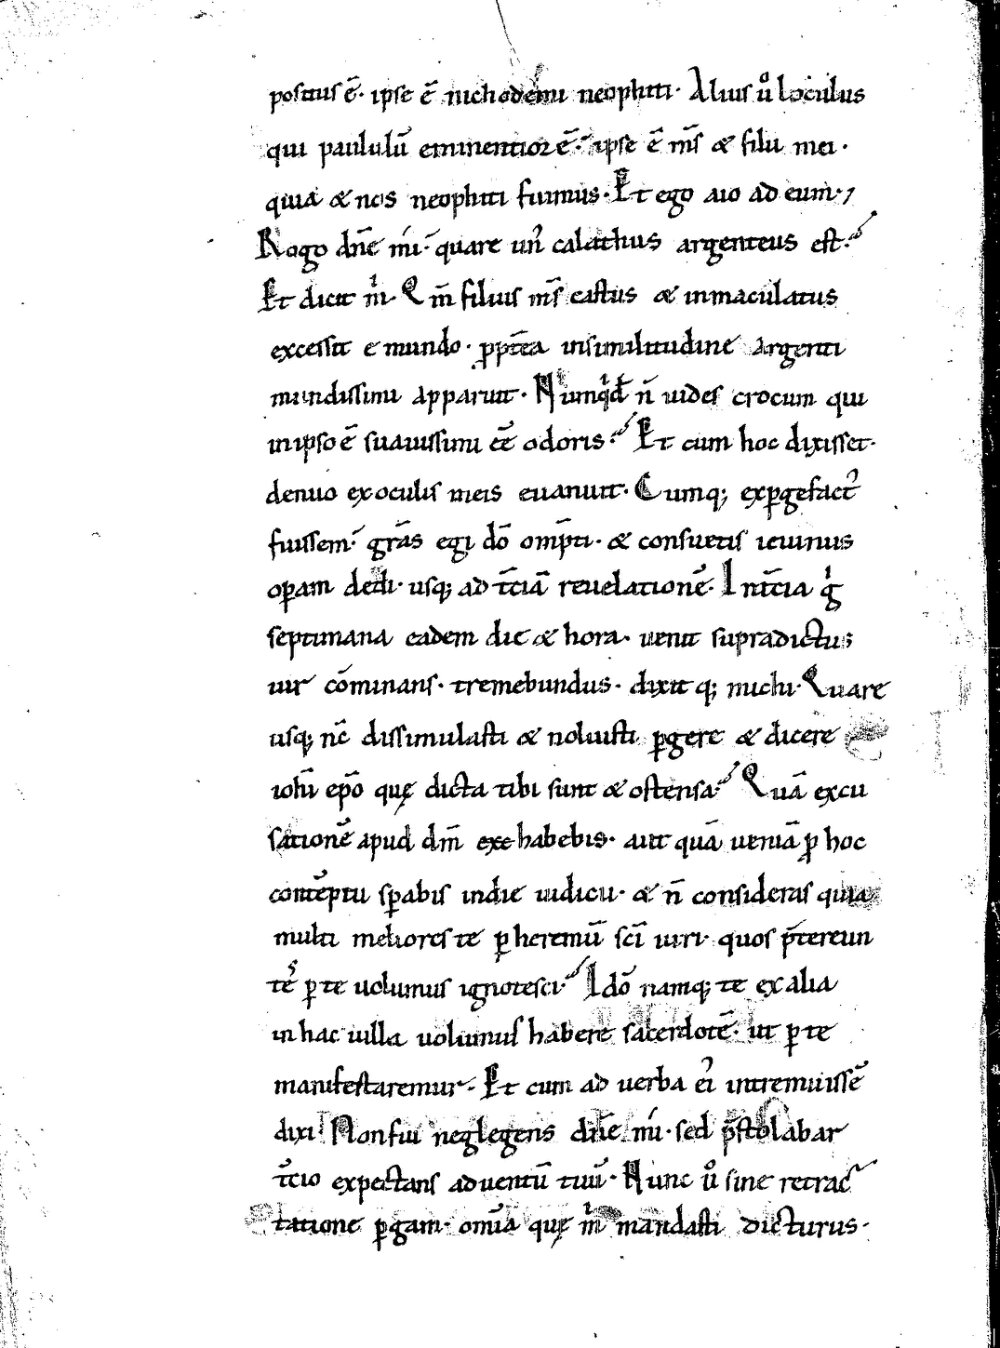 positus ē· ipse ē nichodemi neophiti· Alius ů loculus
qui paululū eminentior ē· ipse ē m̄s & filii mei·
quia & nos neophiti fuimus· Et ego aio ad eum·
Rogo dn̄e mi· quare un̄ calathus argenteus est·
Et dicit m̄· Q m̄ filius m̄s castus & inmaculatus
excessit e mundo· ꝓpt̄ea insimilitudine argenti
mundissimi apparuit· Nūmqd n̄ uides crocum qui
inipso ē suauissimi ēē odoris· Et cum hoc dixisset·
denuo exoculis meis euanuit· Cumq; exꝑgefact᾽
fuissem· gr̄as egi dō omp̄ti· & consuetis ieiuniis
oꝑam dedi· usq; ad t̄ciā reuelationē· Int̄cia ḡ
septimana eadem die & hora· uenit supradictus
uir cōminans· tremebundus· dixit q; michi· Quare
usq; nc̄ dissimulasti & noluisti ꝑgere & dicere
ioh̄i ep̄o quę dicta tibi sunt & ostensa· Quā excu
sationē apud dm̄ exe habebis· aut quā ueniā ꝓ hoc
contēptu sꝑabis indie iudicii· & n̄ consideras quia
multi meliores te ꝑ heremū sc̄i uiri· quos p̄tereun
tēs ꝑ te uolumus ignotesci· Idō namq; te ex alia
in hac uilla uoluimus habere sacerdotē· ut ꝑ te
manifestaremur· Et cum ad uerba ei᾽ intremuissē
dixi· Non fui neglegens dn̄e mi· sed p̄stolabar
t̄cio expectans aduentū tuū· Nunc ů sine retrac
tatione ꝑgam· omīa quę m̄ mandasti dicturus·